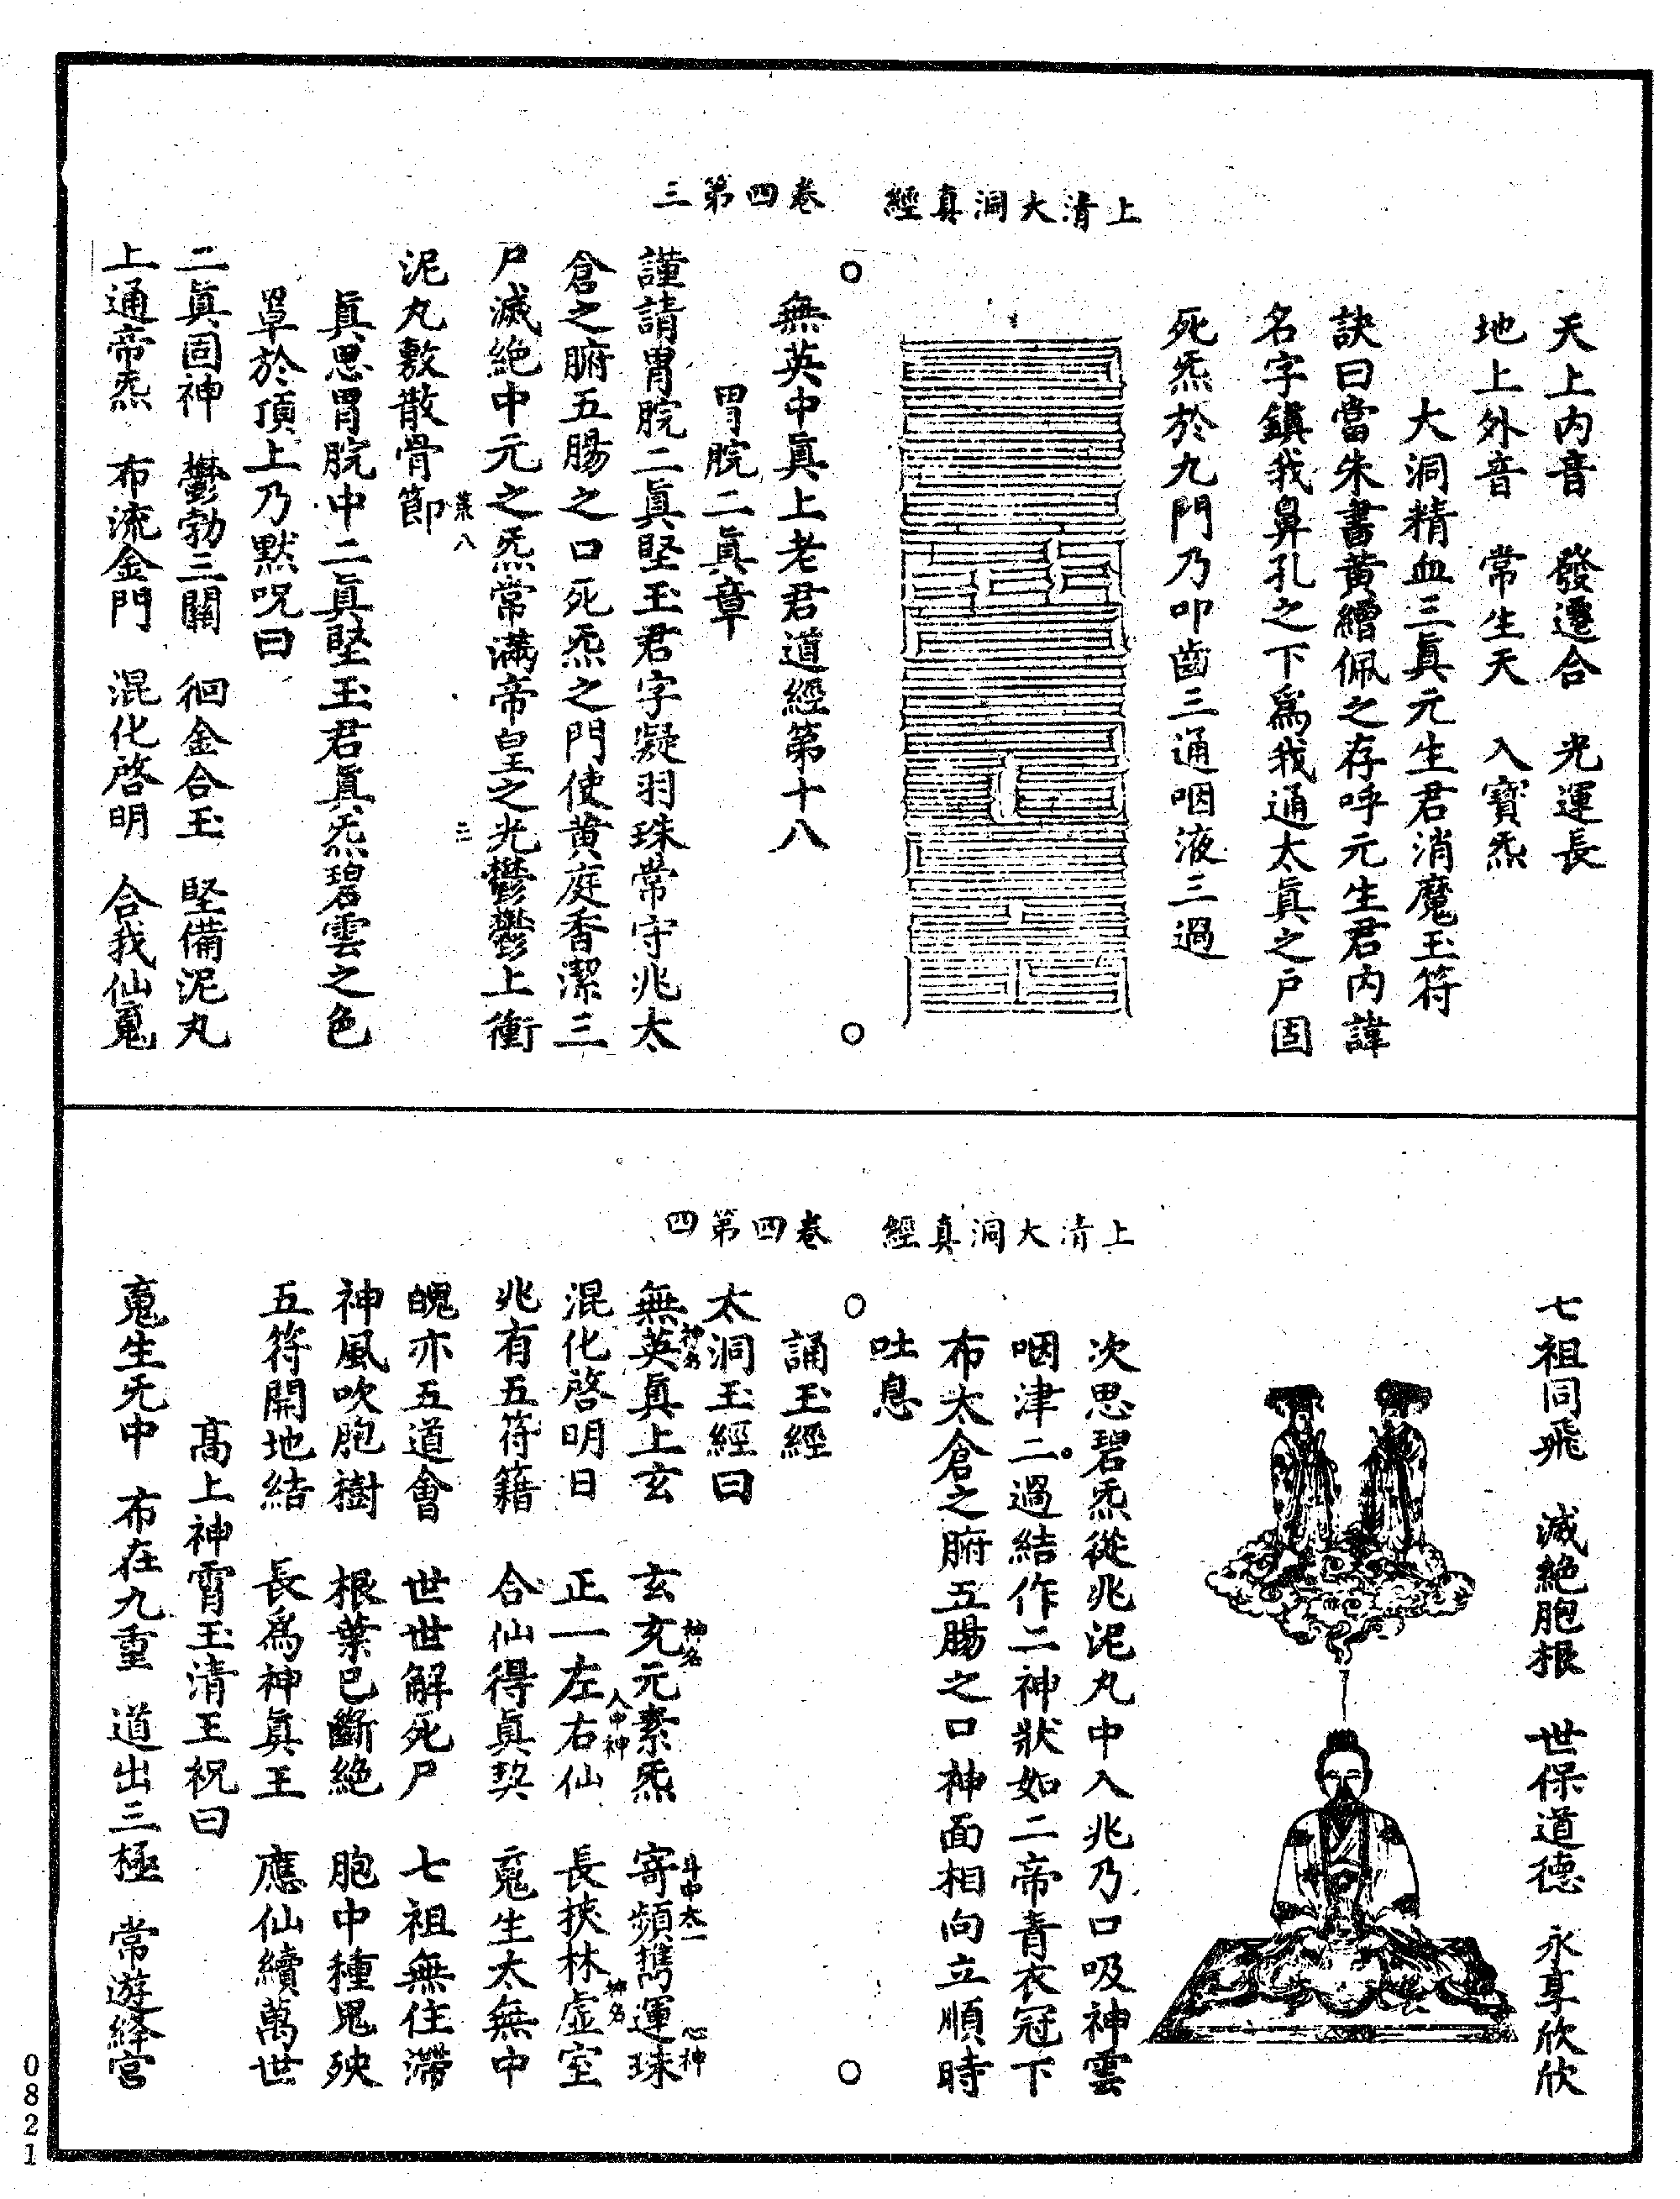 天上內音　發遷合　光運長
地上外音　常生天　入寶炁
大洞精血三眞元生君消魔玉符
訣曰當朱書黃繒佩之存呼元生君內諱
名字鎮我鼻孔之下爲我通太眞之戶固
死炁於九門乃叩齒三通咽液三過
上清大洞真經　卷四第三
無英中眞上老君道經第十八
胃脘二眞章
謹請胃脘二眞堅玉君字凝羽珠常守兆太
倉之腑五腸之口死炁之門使黃庭香潔三
尸滅絕中元之炁常滿帝皇之光鬱鬱上衝
泥丸敷散骨節
菜八
二
眞思胃脘中二眞堅玉君眞炁碧雲之色
罩於頂上乃默呪曰
二眞固神　鬱勃三關　徊金合玉　堅備泥丸
上通帝炁　布流金門　混化啓明　合我仙䰟
七祖同飛　滅絕胞根　世保道德　永享欣欣
次思碧炁從兆泥丸中入兆乃口吸神雲
咽津二過結作二神狀如二帝青衣冠下
布太倉之腑五腸之口神面相向立順時
吐息
上清大洞真經　卷四第四
誦玉經
太洞玉經曰
無英神名眞上玄　玄充神名元素炁　寄頻斗中太一攜運珠心神
混化啓明日　正一左右仙人中神　長挾林虛室神名
兆有五符籍　合仙得眞契　䰟生太無中
魄亦五道會　世世解死尸　七祖無住滯
神風吹胞樹　根葉已斷絕　胞中種鬼殃
五符開地結　長爲神眞王　應仙續萬世
高上神霄玉清王祝曰
䰟生无中　布在九重　道出三極　常遊絳宮
0821